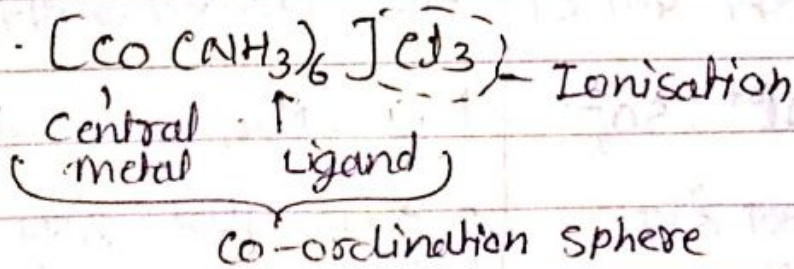 [CO (NH3)6] Cl3 - Ionisation
Central metal
Ligand
CO-ordination sphere